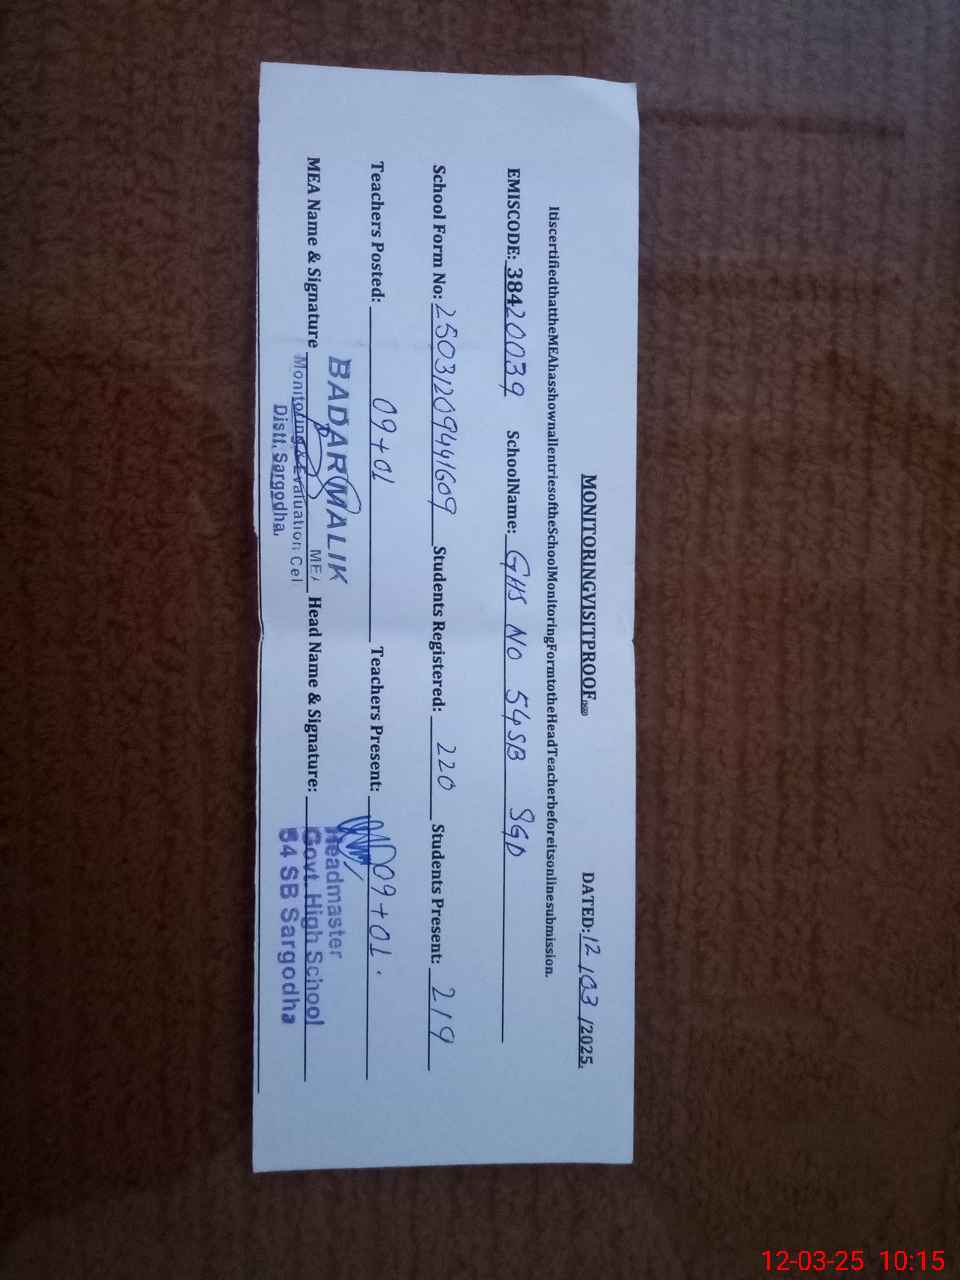 MONITORINGVISITPROOF DATED: 12/03/2025.
ItiscertifiedthattheMEAhasshownallentriesoftheSchoolMonitoringFormtotheHeadTeacherbeforeitsonlinesubmission.
EMISCODE: 38420039 SchoolName: GHS NO 54SB SGD
School Form No: Students Registered: 220 Students Present: 219
Teachers Posted: 09+01 Teachers Present: 09+01.
MEA Name & Signature Head Name & Signature:
BADAR MALIK
MEA
Monitoring & Evaluation Cel
Distt. Sargodha.
Headmaster
Govt. High School
54 SB Sargodha
12-03-25 10:15